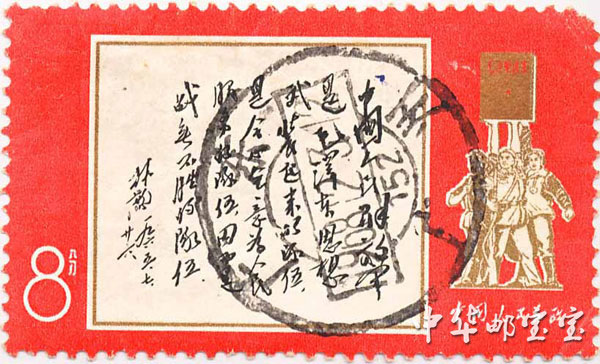 中国人民解放军
是毛泽东思想
武装起来的队伍
是全心全意为人民
服务的队伍,因而是
战无不胜的队伍.
林彪 一九六五.七
廿六
8分